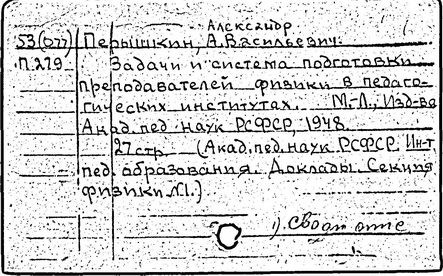 Александр
53(077) Перышкин, А. Васильевич.
П.279. Задачи и система подготовки
преподавателей физики в педаго-
гических институтах. М.-Л., Изд-во
Акад. пед. наук РСФСР, 1948.
27 стр. (Акад. пед. наук РСФСР. Ин-т
пед. образования. Доклады. Секция
физики №1.)
1).